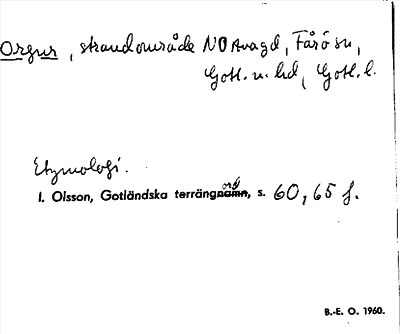 Orgur, strandområde NO Avagd, Fårö sn,
Gotl. n. hd, Gotl. l.
Etymologi.
I. Olsson, Gotländska terrängord, s. 60, 65 f.
B.-E. O. 1960.